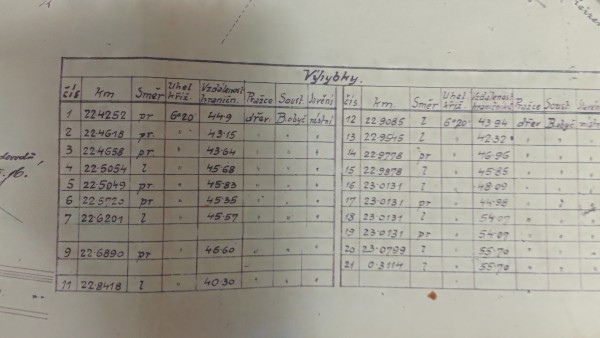 Výhybky.
čís. km Směr Úhel křiž. Vzdálenost hraničn. Pražce Soust.
1 22.4252 pr 6°20' 44.9 dřev.
2 22.4618 pr " 43.15 " " "
3 22.4658 pr " 43.64 " " "
4 22.5054 l " 45.68 " " "
5 22.5049 pr " 45.83 " " "
6 22.5720 pr " 45.35 " " "
7 22.6201 l " 45.57 " " "
9 22.6890 pr " 46.60 " " "
11 22.8418 l " 40.30 " " "
čís. km. Směr Úhel křiž. Vzdálenost Pražce Soust.
12 22.9085 l 6°20' 43.94 dřev.
13 22.9545 l " 42.32 " "
14 22.9778 pr " 46.96 " "
15 22.9878 l " 45.85 " "
16 23.0131 l " 48.09 " "
17 23.0131 pr " 44.98 " "
18 23.0131 l " 54.07 " "
19 23.0131 pr " 54.07 " "
20 23.0789 l " 55.70 " "
21 0.3114 l " 55.70 " "